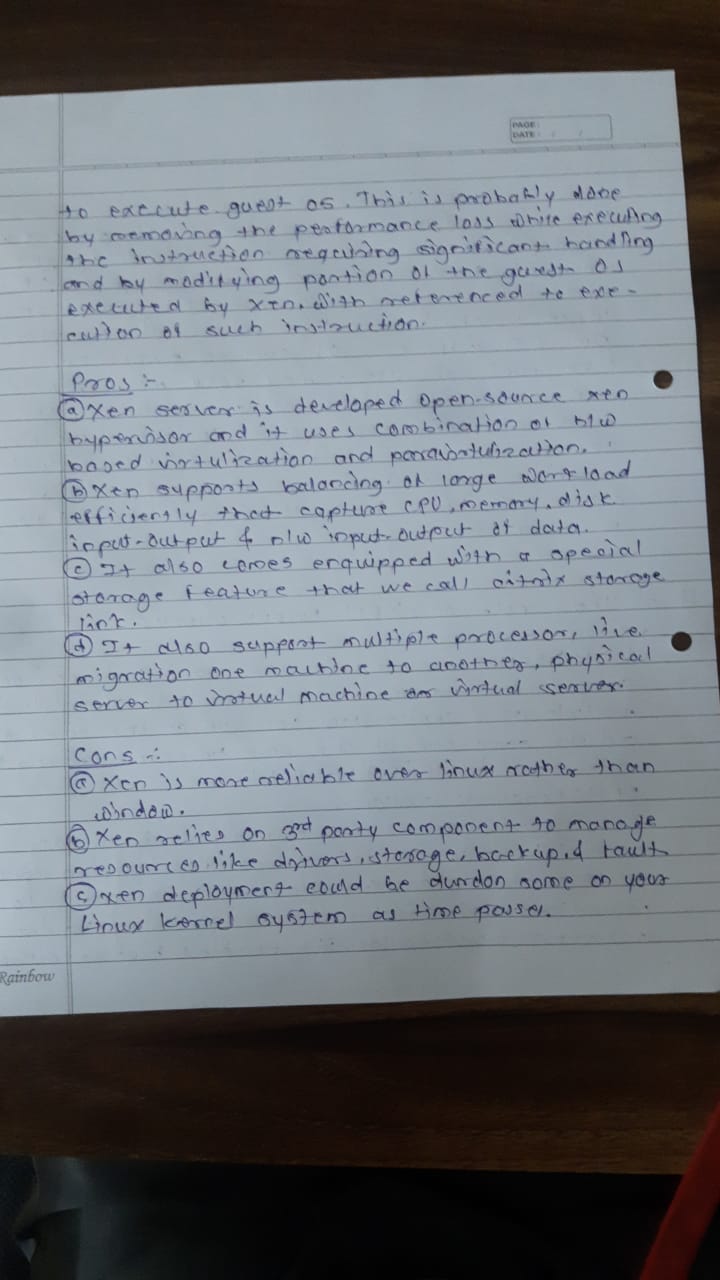 PAGE:
DATE: / /
to execute guest os. This is probably done
by removing the performance loss while executing
the instruction requiring significant handling
and by modifying portion of the guest os
executed by xen. With referenced to exe-
cution of such instruction.
Pros :-
(a) Xen server is developed open-source xen
hypervisor and it uses combination of h/w
based virtulization and paravirtulization.
(b) Xen supports balancing of large workload
efficiently that capture CPU, memory, disk
input-output & n/w input-output of data.
(c) It also comes enquipped with a special
storage feature that we call citrix storage
link.
(d) It also support multiple processor, live
migration one machine to another, physical
server to virtual machine or virtual server.
Cons :-
(a) Xen is more reliable over linux rather than
window.
(b) Xen relies on 3rd party component to manage
resources like drivers, storage, backup, & fault
(c) xen deployment could be some on your
Linux kernel system as time passes.
Rainbow